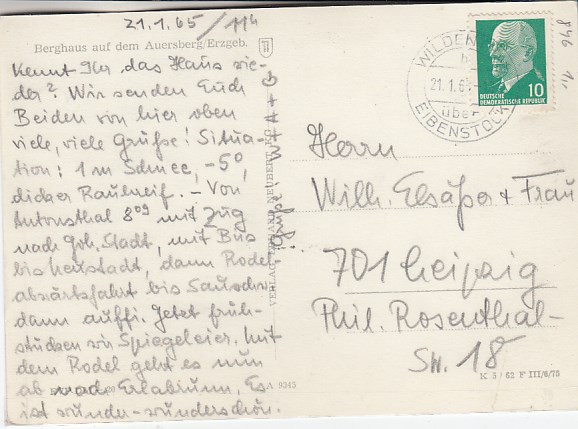 21.1.65/114
Berghaus auf dem Auersberg/Erzgeb.
Kennt Ihr das Haus wie-
der? Wir senden Euch
Beiden von hier oben
viele, viele Grüße! Situa-
tion: 1 m Schnee, -5°,
dicker Rauhreif. - Von
Antonsthal 8⁰⁹ mit Zug
nach Joh.Stadt, mit Bus
bis Neustadt, dann Rodel-
abwärtsfahrt bis
dann auffi. Jetzt früh-
stücken wir Spiegeleier. Mit
dem Rodel geht es nun
ab nach Erlabrunn. Es
ist wunder-wunderschön.
VERLAG ERHARD NEUBERT
A 9345
WILDEN
21.1.65
über
EIBENSTOCK
10
DEUTSCHE
DEMOKRATISCHE REPUBLIK
846
Herrn
Willi Elsäßer + Frau
701 Leipzig
Phil. Rosenthal-
Str. 18
K 5/62 F III/6/75